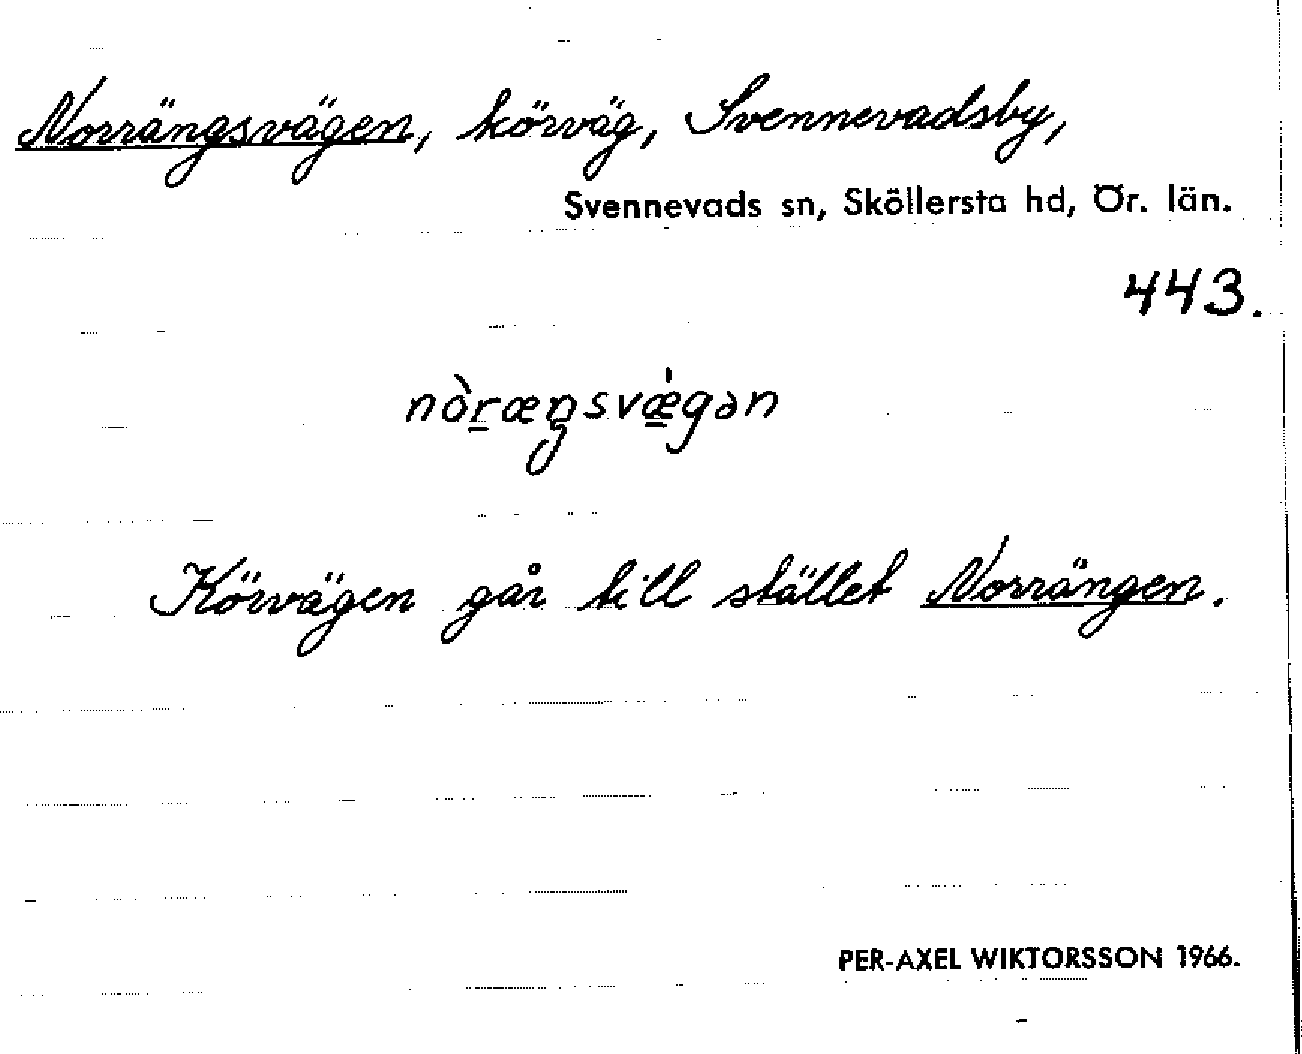 Norrängsvägen, körväg, Svennevadsby,
Svennevads sn, Sköllersta hd, Ör. län.
443.
nòṟæŋsvæ̱̍gən
Körvägen går till stället Norrängen.
PER-AXEL WIKTORSSON 1966.